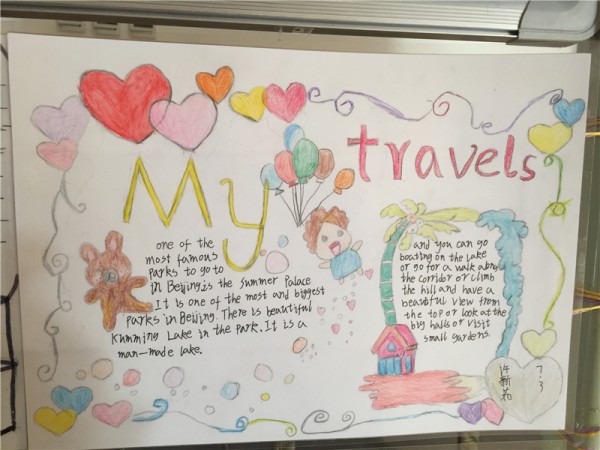 My travels
one of the
most famous
parks to go to
in Beijing.is the summer Palace
It is one of the most and biggest
parks in Beijing. There is beautiful
Kunming Lake in the park. It is a
man-made lake.
and you can go
boating on the Lake
or go for a walk along
the corridor or climb
the hill and have a
beautiful view from
the top or look at the
big halls or visit
small gardens.
7.3
许新茹